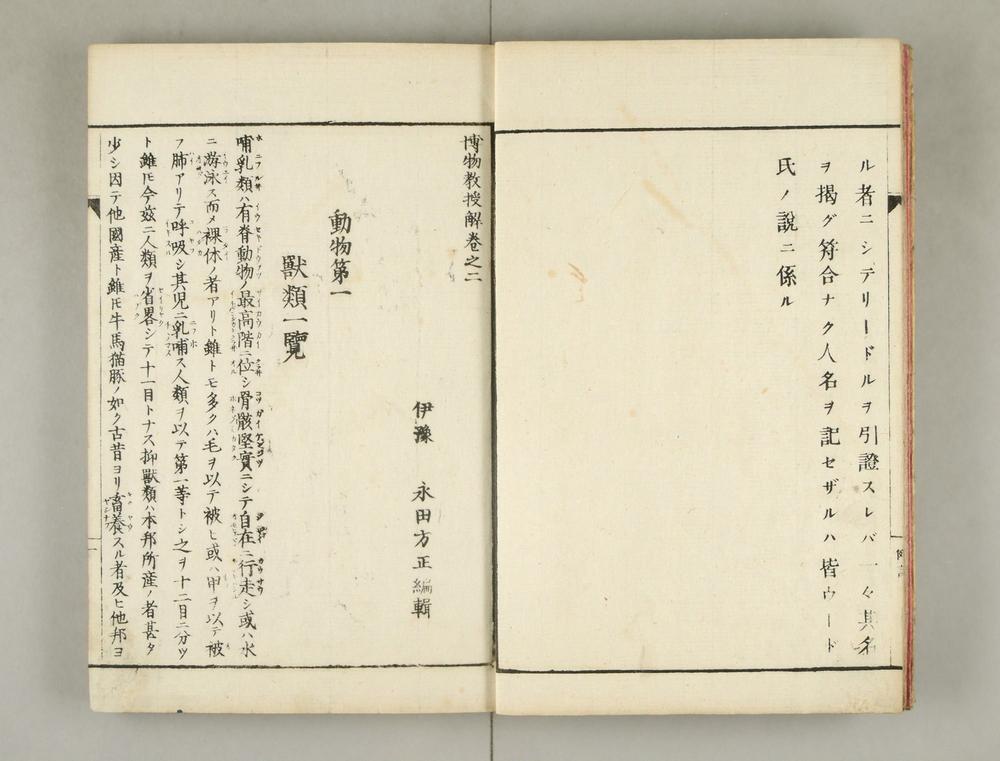 ル者ニシテリードルヲ引證スレバ一々其名
ヲ揭グ符合ナク人名ヲ記セザルハ皆ウード
氏ノ說ニ係ル
博物教授解卷之二
伊豫 永田方正編輯
動物第一
獸類一覽
哺乳類ハ有脊動物ノ最高階ニ位シ骨骸堅實ニシテ自在ニ行走シ或ハ水
ニ游泳ス而メ裸体ノ者アリト雖トモ多クハ毛ヲ以テ被ヒ或ハ甲ヲ以テ被
フ肺アリテ呼吸シ其児ニ乳哺ス人類ヲ以テ第一等トシ之ヲ十二目ニ分ツ
ト雖𪜈今茲ニ人類ヲ省畧シテ十一目トナス抑獸類ハ本邦所産ノ者甚タ
少シ因テ他國産ト雖𪜈牛馬猫豚ノ如ク古昔ヨリ畜養スル者及ヒ他邦ヨ